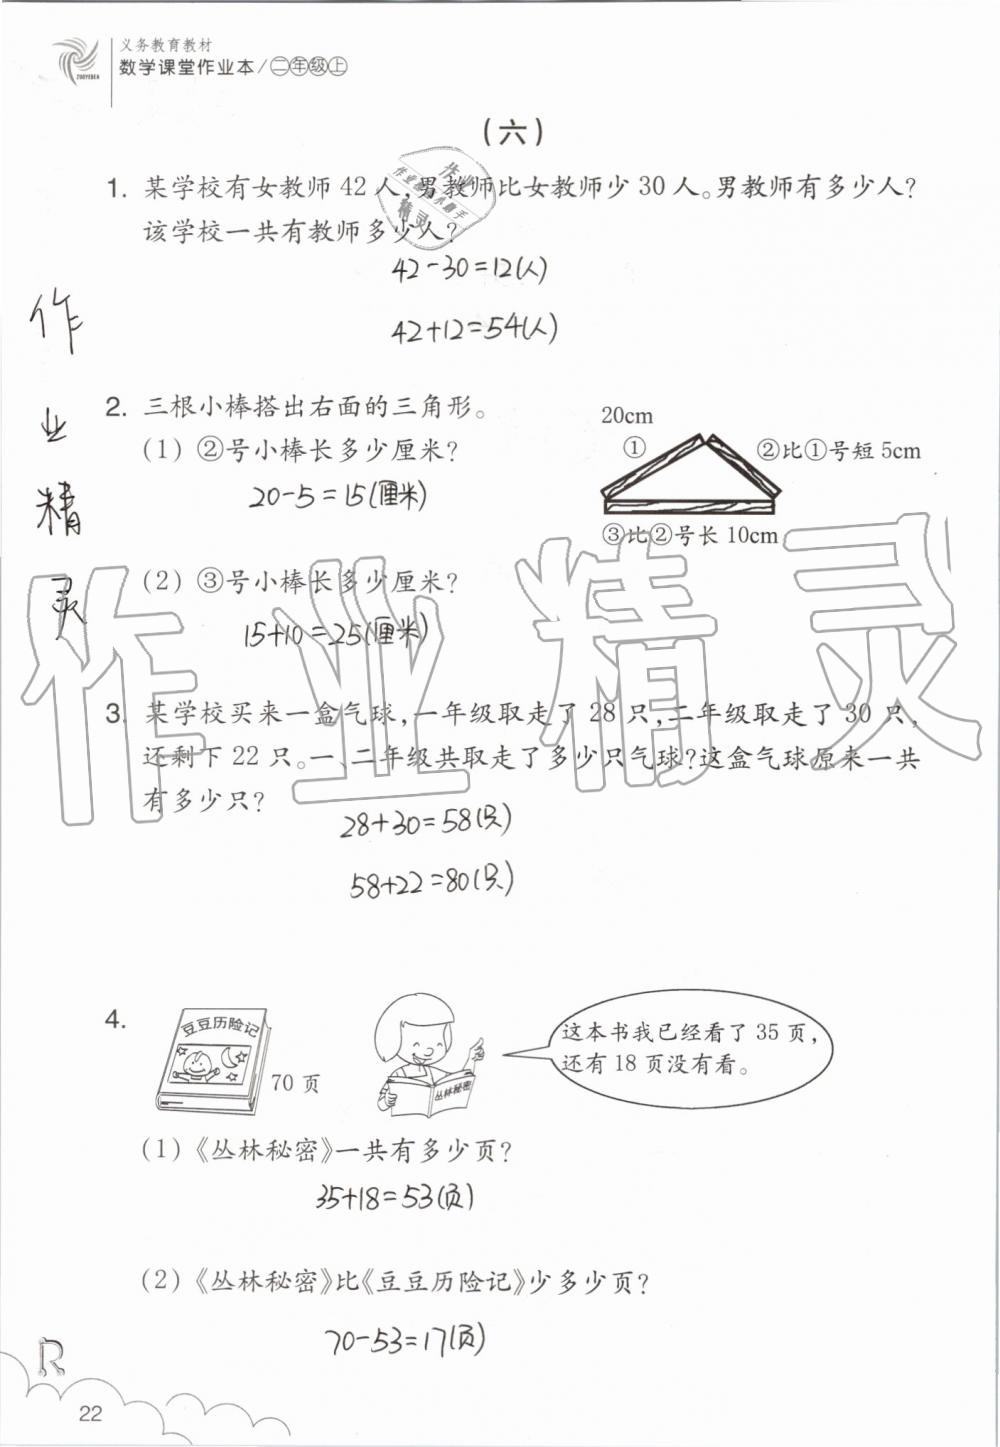 义务教育教材
数学课堂作业本/二年级上
ZUOYEBEN
(六)
1. 某学校有女教师42人,男教师比女教师少30人。男教师有多少人?
该学校一共有教师多少人?
42-30=12(人)
42+12=54(人)
作
业
精
灵
2. 三根小棒搭出右面的三角形。
(1) ②号小棒长多少厘米?
20-5=15(厘米)
20cm
① ②比①号短5cm
③比②号长10cm
(2) ③号小棒长多少厘米?
15+10=25(厘米)
作业精灵
3. 某学校买来一盒气球,一年级取走了28只,二年级取走了30只,
还剩下22只。一、二年级共取走了多少只气球?这盒气球原来一共
有多少只?
28+30=58(只)
58+22=80(只)
4.
豆豆历险记
70页
丛林秘密
这本书我已经看了35页,
还有18页没有看。
(1)《丛林秘密》一共有多少页?
35+18=53(页)
(2)《丛林秘密》比《豆豆历险记》少多少页?
70-53=17(页)
R
22